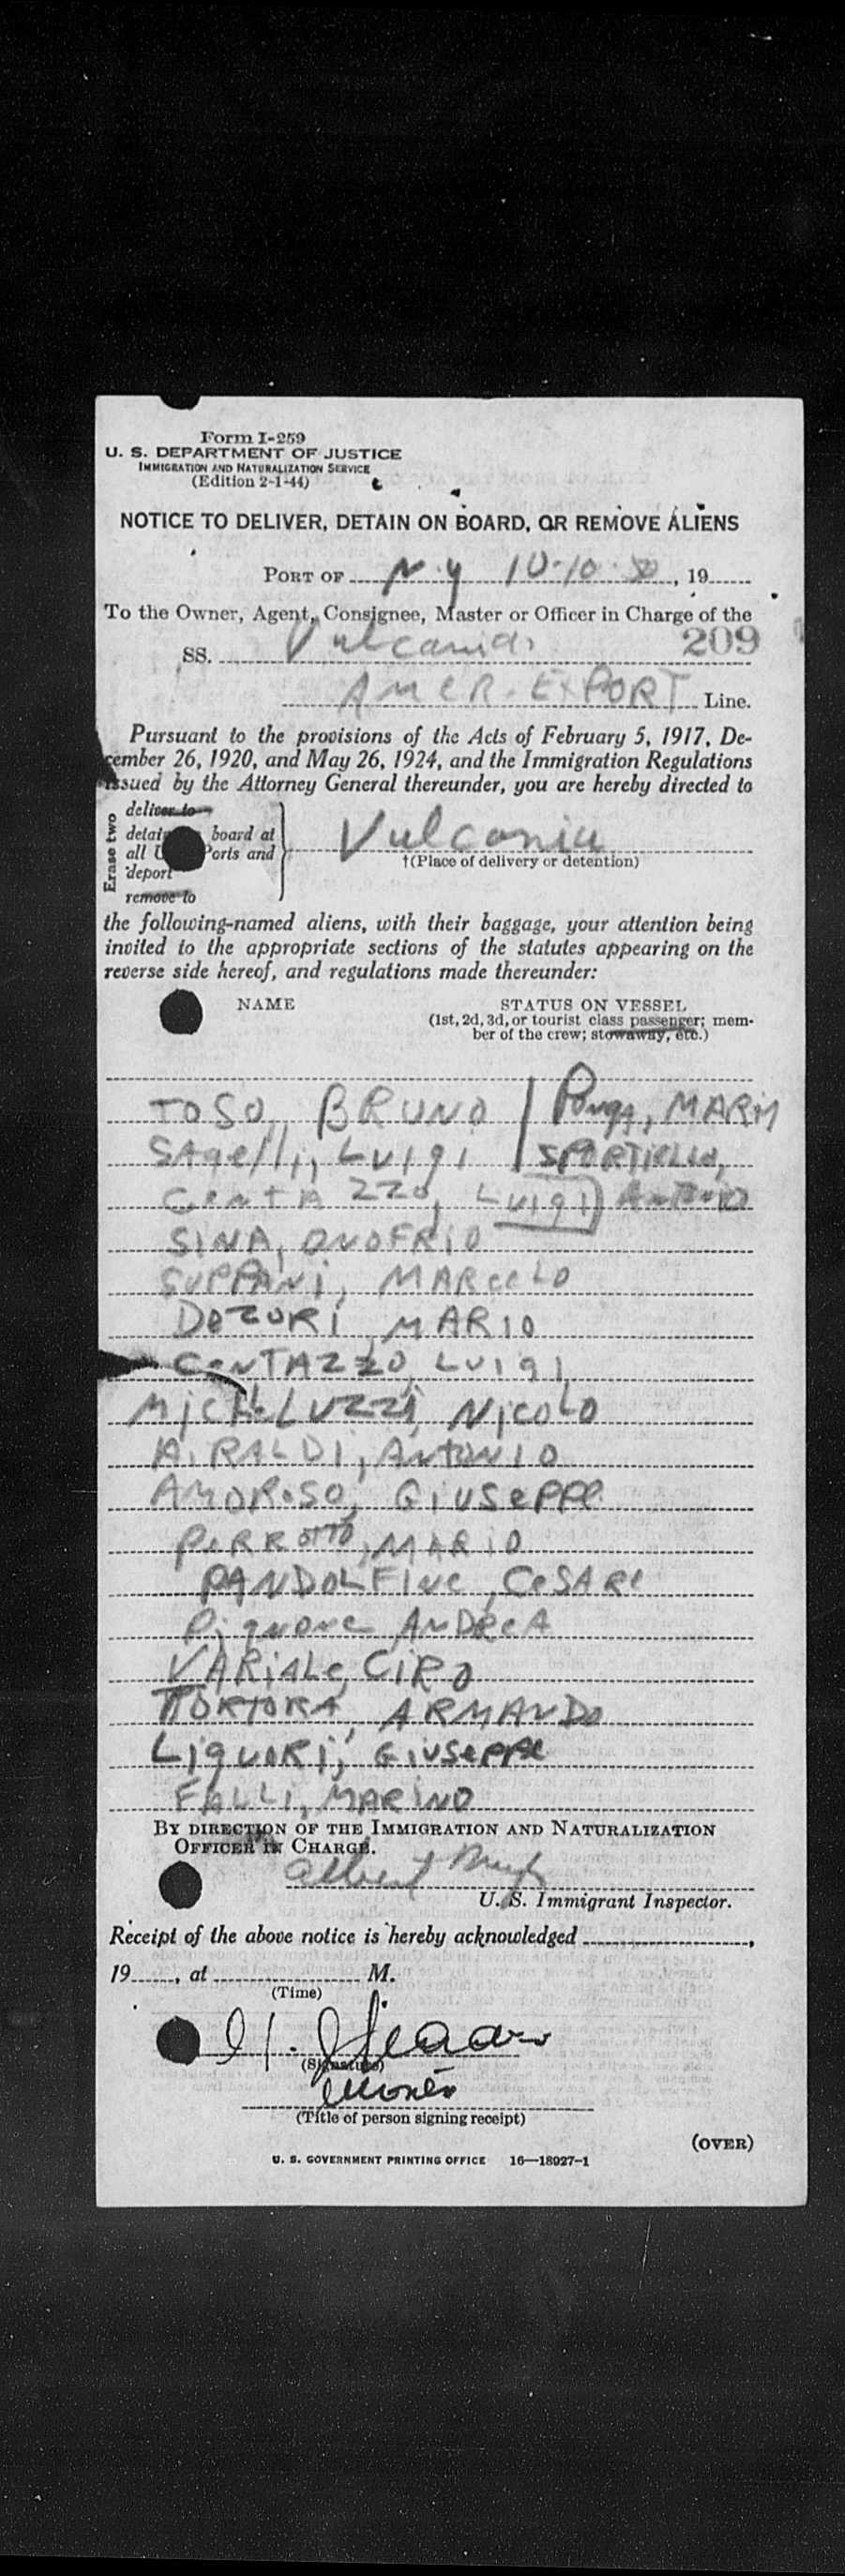 Form I-259
U. S. DEPARTMENT OF JUSTICE
IMMIGRATION AND NATURALIZATION SERVICE
(Edition 2-1-44)
NOTICE TO DELIVER, DETAIN ON BOARD, OR REMOVE ALIENS
PORT OF N.Y 10-10-50, 19
To the Owner, Agent, Consignee, Master or Officer in Charge of the
209
SS. Vulcania
AMER. EXPORT Line.
Pursuant to the provisions of the Acts of February 5, 1917, De-
cember 26, 1920, and May 26, 1924, and the Immigration Regulations
issued by the Attorney General thereunder, you are hereby directed to
Erase two
deliver to
detain board at
all Ports and
deport
remove to
Vulcania
†(Place of delivery or detention)
the following-named aliens, with their baggage, your attention being
invited to the appropriate sections of the statutes appearing on the
reverse side hereof, and regulations made thereunder:
NAME STATUS ON VESSEL
(1st, 2d, 3d, or tourist class passenger; mem-
ber of the crew; stowaway, etc.)
TOSO, BRUNO MARIA
SAgelli, LUIGI SPORTIELLO,
CentAzzo, LUIGI Antonio
SINA, ONOFRIO
MARCeLO
MARIO
CentAZZO, LUIGI
MicheLUZZi, NicoLO
AiRALDi, AntONIO
AMOROSO, GiUSePPe
PeRROTTO, MARIO
PANDOLFINe, CeSARe
Pignone ANDReA
VARiALe, CIRO
TORTORA, ARMANDO
LiguORi, GiuSePPe
FALLI, MARINO
BY DIRECTION OF THE IMMIGRATION AND NATURALIZATION
OFFICER IN CHARGE.
Albert
U. S. Immigrant Inspector.
Receipt of the above notice is hereby acknowledged ,
19 , at M.
(Time)
(Signature)
(Title of person signing receipt)
(OVER)
U. S. GOVERNMENT PRINTING OFFICE 16—18027-1